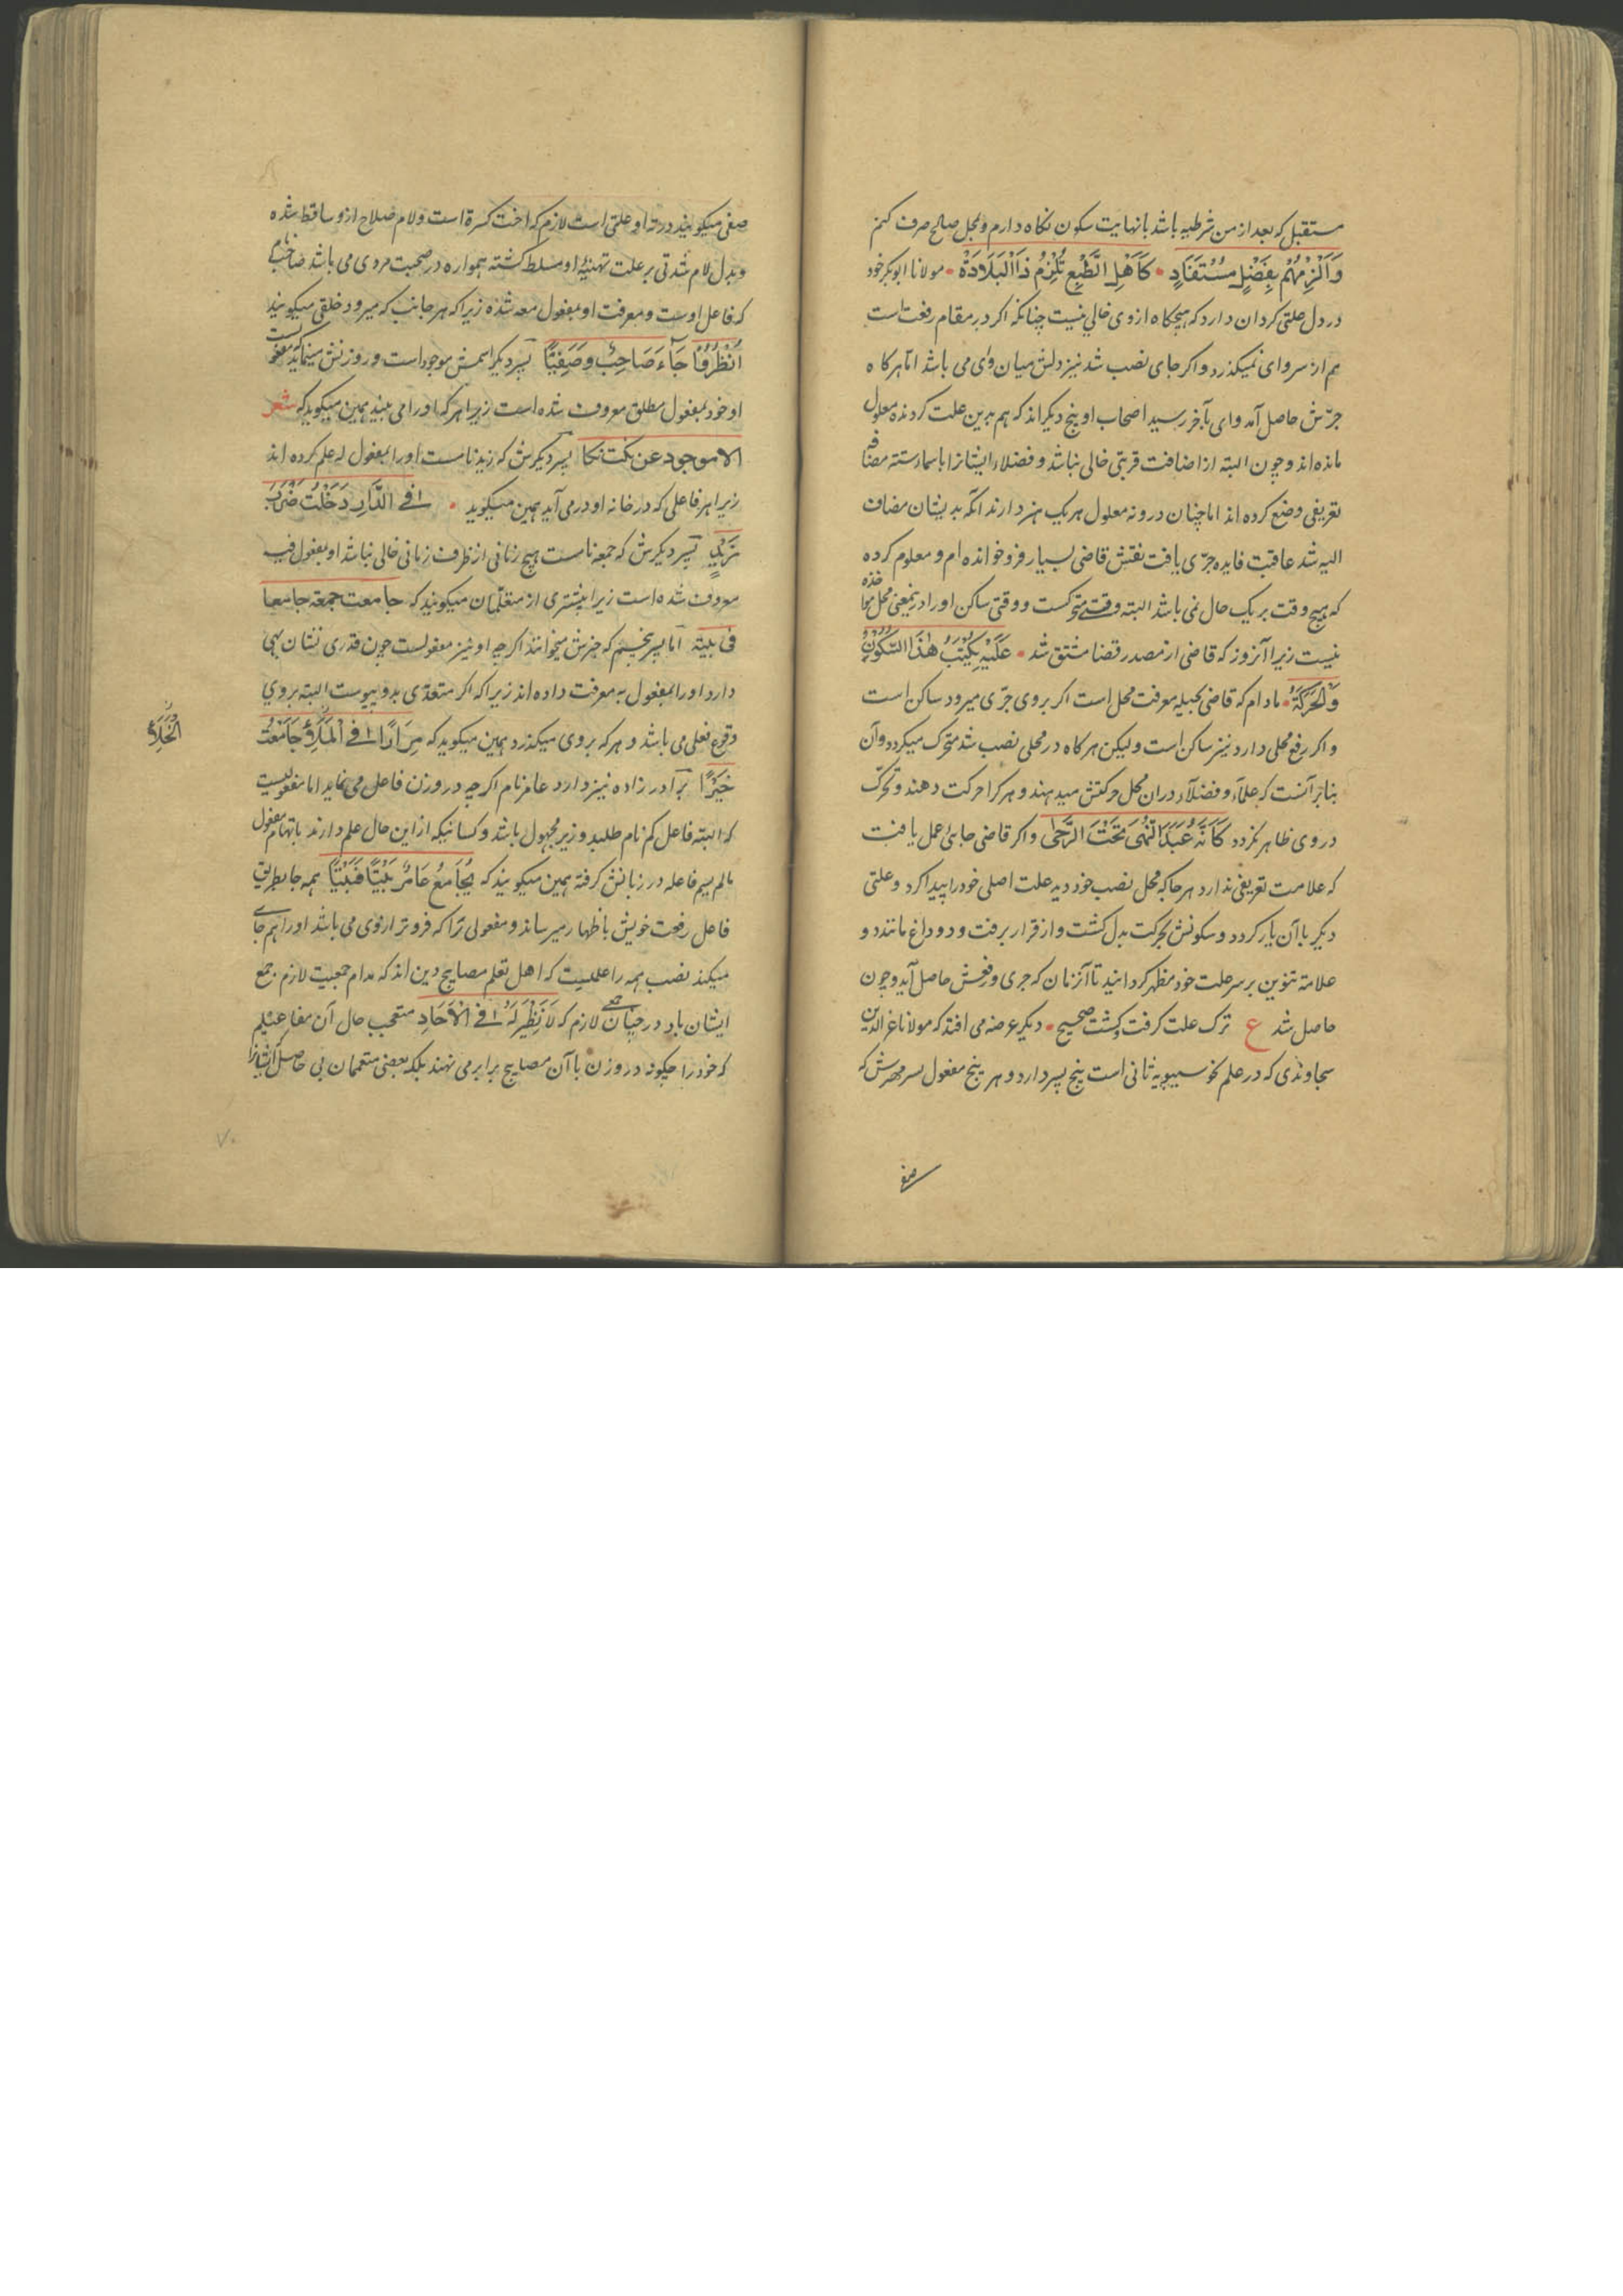 مستقبل که بعد از من شرطیه باشد بانهایت سکون نکاه دارم و بمحل صالح صرف کنم
وَاَلْزِمْهُمْ بِفَضْلٍ مُسْتَفَادٍ • کَاَهْلِ الطَّبْعِ تُلْزِمُ ذَا الْبَلَادَةْ • مولانا ابوبکر خود
در دل علتی کردان دارد که هیچکاه از وی خالی نیست چنانکه اکر در مقام رفعت است
هم از سر وای نمیکذرد و اکر جای نصب شد نیز دلش میان وای می باشد اما هرکاه
جرّش حاصل آمد وای بآخر رسید اصحاب او پنج دیکراند که هم بدین علت کردنده معلول
مانده اند و چون البته از اضافت قربتی خالی نباشد و فضلاء ایشانرا باسماء سته مضافه
تعریفی وضع کرده اند اما چنان درونه معلول هر یک هنر دارند انکه بدیشان مضاف
الیه شد عاقبت فایده جرّی یافت نقش قاضی بسیار فرو خوانده ام و معلوم کرده
که هیچ وقت بر یک حال نمی باشد البته وقتی متحرکست و وقتی ساکن او را درینمعنی محل مؤاخذه
نیست زیرا آنروز که قاضی از مصدر قضا مشتق شد • عَلَیْهِ یُکْتَبُ هٰذَا السُّکُونُ
وَالْحَرَکَةُ • مادام که قاضی بحیله معرفت محل است اکر بروی جرّی میرود ساکن است
و اکر رفع محلی دارد نیز ساکن است ولیکن هرکاه در محلی نصب شد متحرک میکردد و آن
بنابر آنست که علماء و فضلاء در ان محل حرکتش میدهند و هرکرا حرکت دهند و تحرک
در وی ظاهر نکردد کَاَنَّهُ عُبَّدَ النُّهَی تَحْتَ الرَّحَی و اکر قاضی جائی عمل یافت
که علامت تعریفی ندارد هرجا که محل نصب خود دید علت اصلی خود را پیدا کرد و علتی
دیکر با آن یار کردد و سکونش بحرکت بدل کشت و از قرار برفت و دو داغ مانند دو
علامة تنوین بر سر علت خود مظهر کردانید تا آنزمان که جری و رفعش حاصل آید و چون
حاصل شد ع ترک علت کرفت و کشت صحیح • دیکر عرضه می افتد که مولانا عز الدین
سجاوندی که در علم نحو سیبویه ثانی است پنج پسر دارد و هر پنج مفعول پسر مهترش که
صفی
صفی میکویند در ته او علتی است لازم که اخت کسرة است و لام صلاح ازو ساقط شده
و بدل لام شدتی بر علت تهنیهٔ او مسلط کشته همواره در صحبت مردی می باشد صاحب نام
که فاعل اوست و معرفت او بمفعول معه شده زیرا که هر جانب که میرود خلقی میکویند
اُنْظُرُوْا جَآءَ صَاحِبٌ وَصَفِیًّا پسر دیکر اسمش موجود است و روزنش مینماید که مفعولست
او خود بمفعول مطلق معروف شده است زیرا هر که او را می بیند همین میکوید که شعر
الا موجود عن نکت نکا پسر دیکرش که زید نامست او را بمفعول له علم کرده اند
زیرا هر فاعلی که در خانه او در می آید همین میکوید • اِفِی الدَّارِ دَخَلْتُ ضَرْبَ
زَیْدٍ پسر دیکرش که جمعه نامست هیچ زمانی از ظرف زمانی خالی نباشد او بمفعول فیه
معروف شده است زیرا بیشتری از متعلمان میکویند که جامعت جمعة جامعا
فی بیته اما پسر پنجیم که خیرش میخوانند اکرچه او نیز مفعولست چون قدری نشان بهی
دارد او را بمفعول به معرفت داده اند زیرا که اکر متعدّی بدو پیوست البته بروی
وقوع فعلی می باشد و هر که بروی میکذرد همین میکوید که مِرَارًا اِفِی الْمَلَاءِ جَامَعْتُ
الْخَلَاءِ
خَیْرًا برادر زاده نیز دارد عامر نام اکرچه در وزن فاعل می نماید اما مفعولیست
که البته فاعل کم نام طلبد و زیر مجهول باشد و کسانیکه از این حال علم دارند باتهام مفعول
مالم یسم فاعله در زبانش کرفته همین میکویند که یُجَامَعُ عَامِرٌ بَیْتًا فَبَیْتًا همه جا بطریق
فاعل رفعت خویش باظهار میرساند و مفعولی ترا که فروتر از وی می باشد او را هم جای
میکند نصب همه را علمیست که اهل تعلم مصابیح دین اند که مدام جمعیت لازم جمع
ایشان باد در جمعی چنان لازم که لَا نَظِیْرَ لَهُ اِفِی الْاٰحَادِ متعجب حال آن مفاعیلم
که خود را چکونه در وزن با آن مصابیح برابر می نهند بلکه بعضی متعلمان بی حاصل ایشانرا
۷۰